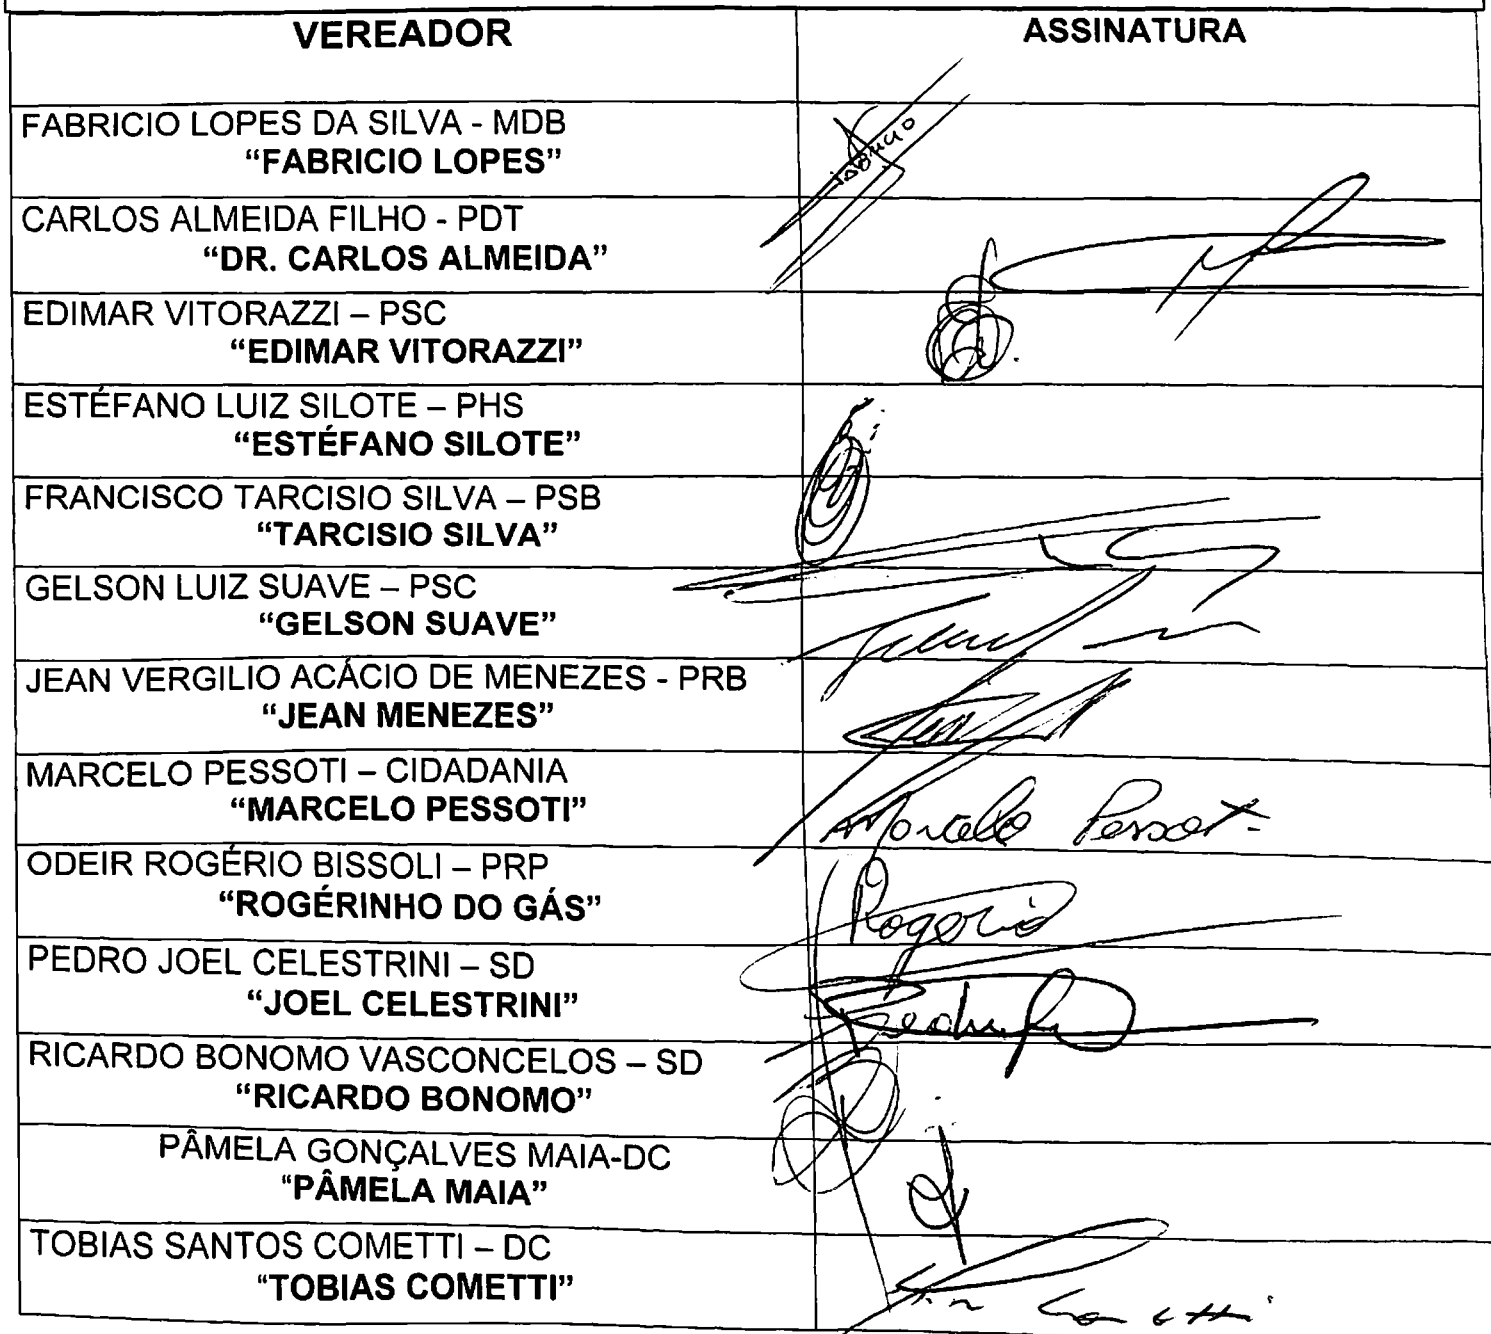 VEREADOR ASSINATURA
FABRICIO LOPES DA SILVA - MDB
“FABRICIO LOPES”
CARLOS ALMEIDA FILHO - PDT
“DR. CARLOS ALMEIDA”
EDIMAR VITORAZZI – PSC
“EDIMAR VITORAZZI”
ESTÉFANO LUIZ SILOTE – PHS
“ESTÉFANO SILOTE”
FRANCISCO TARCISIO SILVA – PSB
“TARCISIO SILVA”
GELSON LUIZ SUAVE – PSC
“GELSON SUAVE”
JEAN VERGILIO ACÁCIO DE MENEZES - PRB
“JEAN MENEZES”
MARCELO PESSOTI – CIDADANIA
“MARCELO PESSOTI” Marcelo Pessoti
ODEIR ROGÉRIO BISSOLI – PRP
“ROGÉRINHO DO GÁS” Rogerio
PEDRO JOEL CELESTRINI – SD
“JOEL CELESTRINI”
RICARDO BONOMO VASCONCELOS – SD
“RICARDO BONOMO”
PÂMELA GONÇALVES MAIA-DC
“PÂMELA MAIA”
TOBIAS SANTOS COMETTI – DC
“TOBIAS COMETTI” Cometti